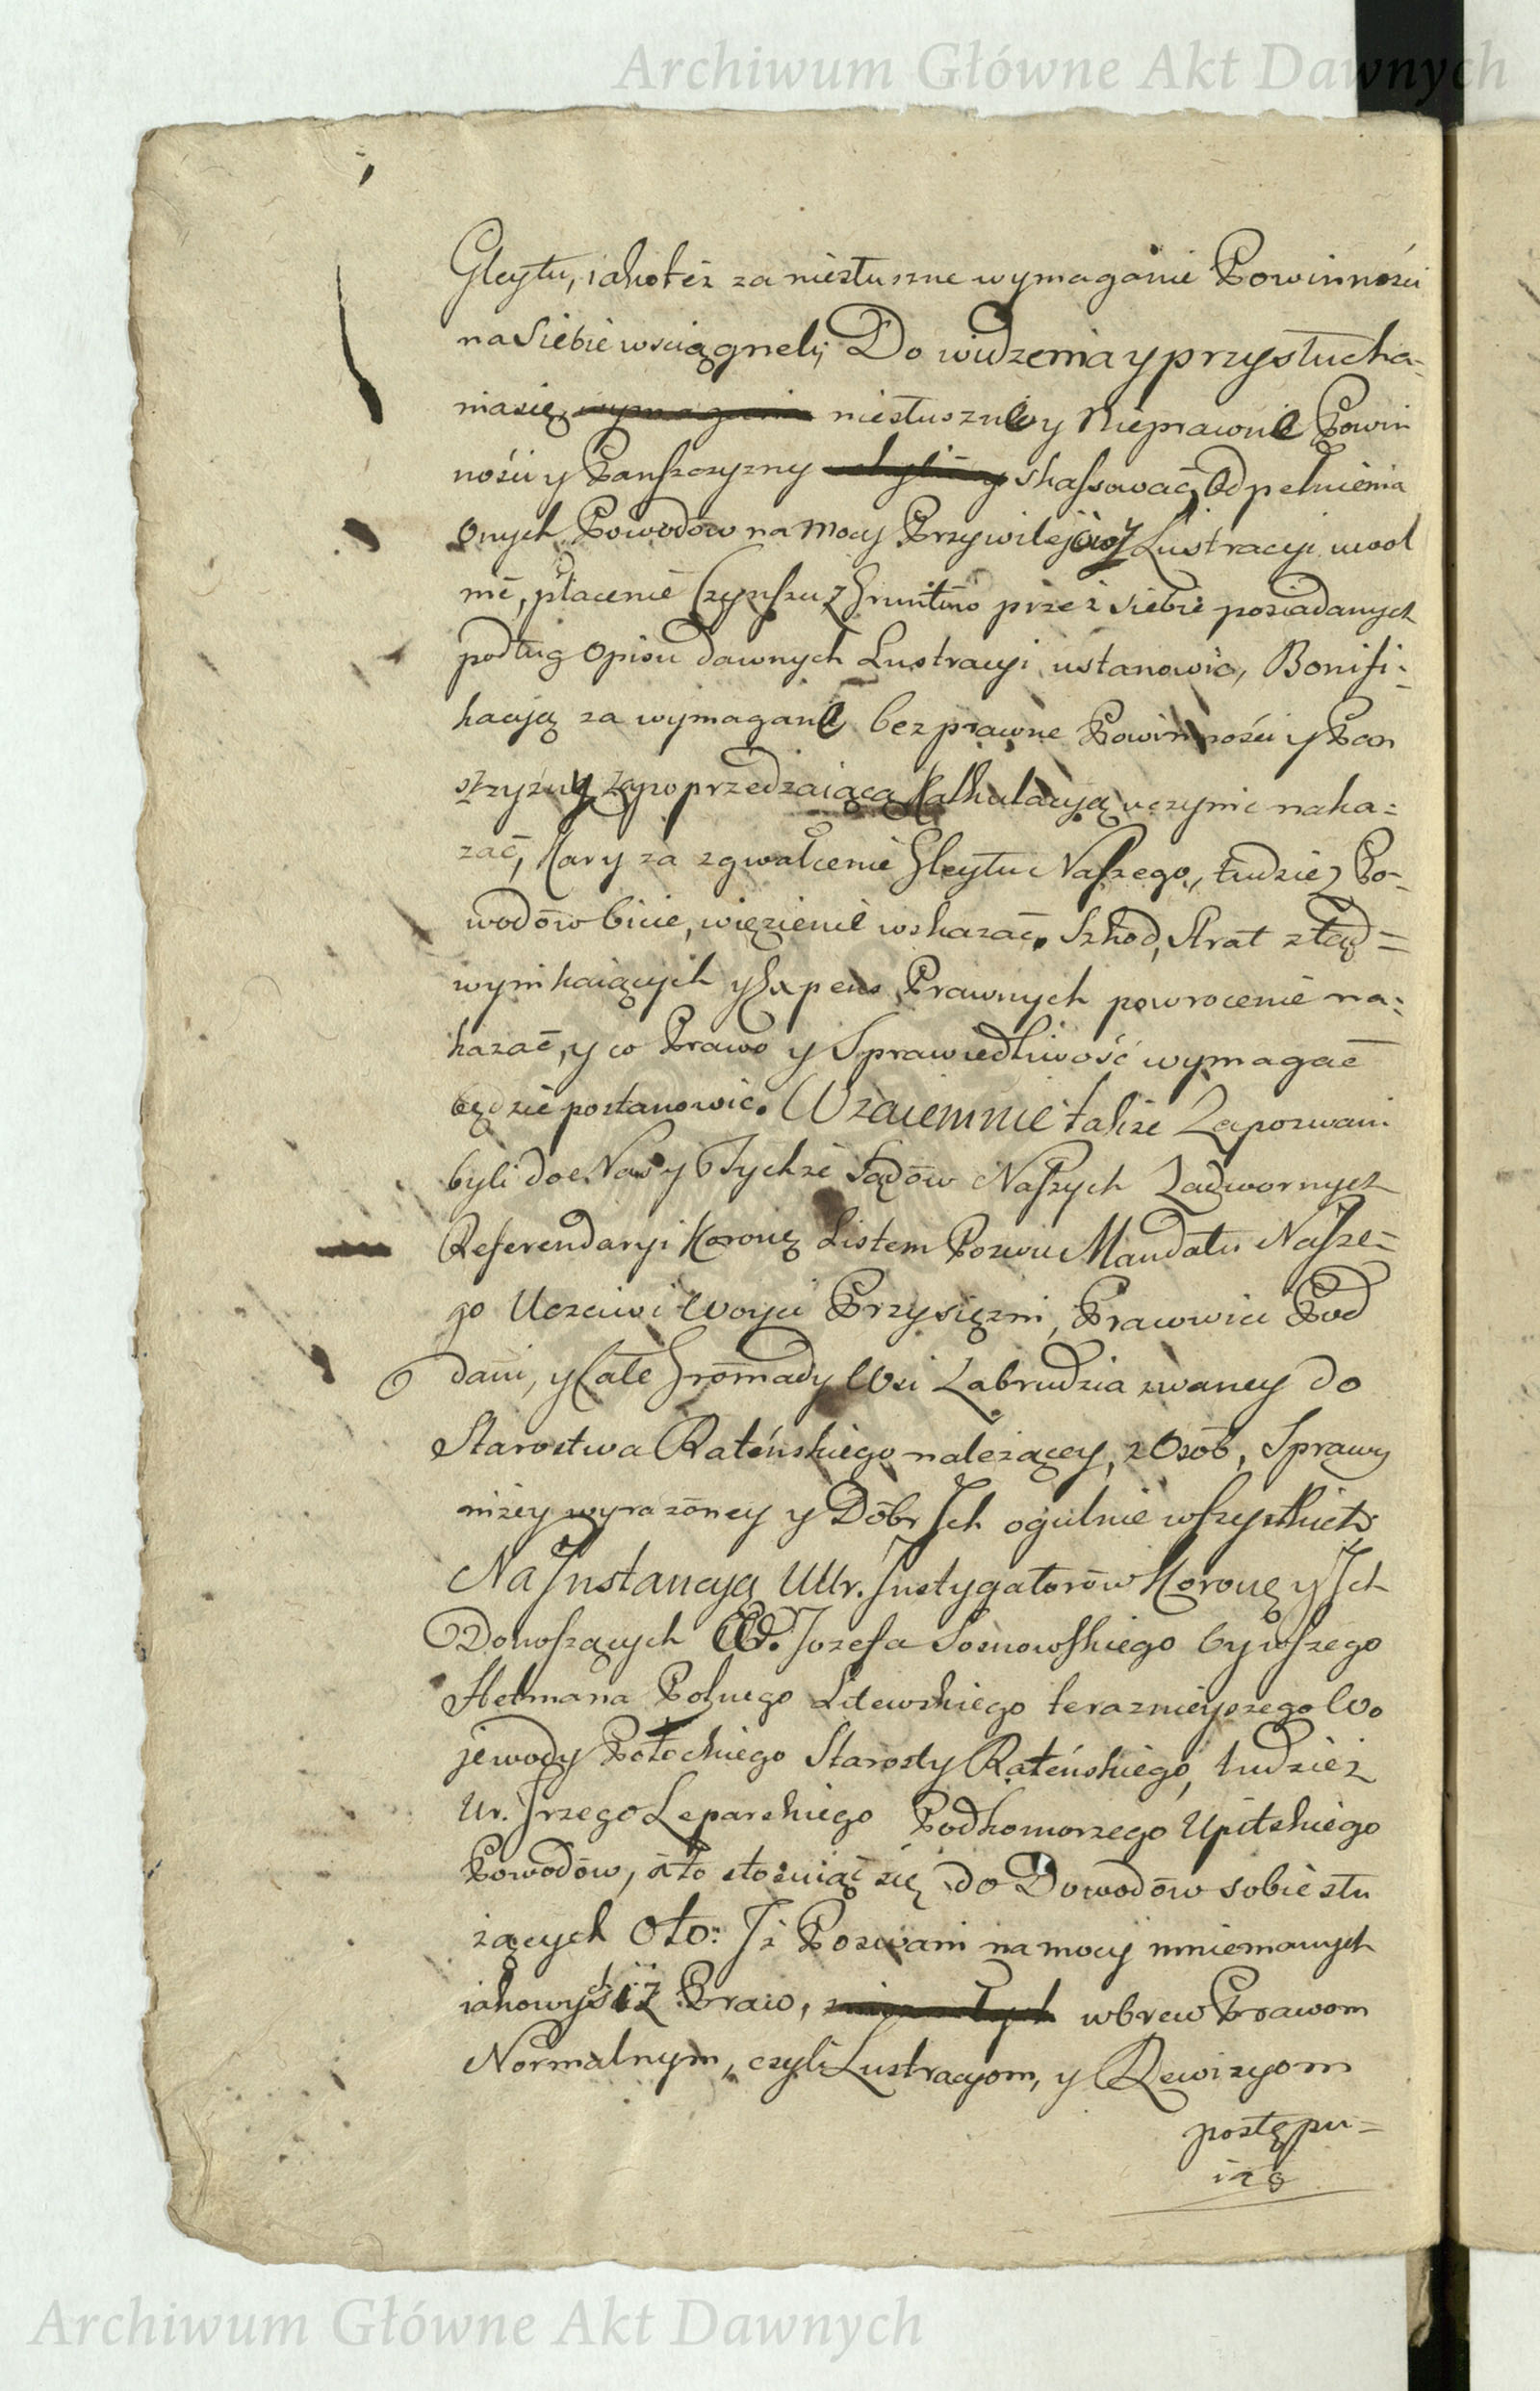 Archiwum Główne Akt Dawnych
Gleytu, iakoteż za niesłuszne wymaganie Powinności
na siebie wsciągneli; Do widzenia y przysłucha-
nia się niesłuszne y Nieprawne Powin
ności y Panszczyzny skassować, Od pełnienia
Onych Powodów na mocy Przywilejów y Lustracyi uwol
nić, płacenie Czynszu z Gruntów przez siebie posiadanych
podług Opisu dawnych Lustracyi ustanowić, Bonifi-
kacyją za wymagane bezprawne Powinności y Pan
szzyzny zapoprzedzaiącą Kalkulacyją uczynic naka=
zać, Kary za zgwałcenie Gleytu Naszego, tudziez Po-
wodów bicie, więzienie wskazać. Szkod, Strat ztąd=
wynikaiących y Expens Prawnych powrocenie na-
kazać, y co Prawo y Sprawiedliwość wymagać
będzie postanowić. Wzaiemnie także Zapozwani
byli do Nas y Tychże Sądów Naszych Zadwornych
Referendaryi Koronę Listem Pozwu Mandatu Nasze-
go Uczciwi Woyci Przysięzni, Pracowici Pod
dani, y Całe Gromady Wsi Zabrudzia zwaney do
Starostwa Ratńskiego należącey, z Osób, Sprawy
niżey wyrażoney y Dóbr Ich ogulnie wszystkich
Na Instancyą UUr. Instygatorów Koronę y Ich
Donoszących W. Jozefa Sosnowskiego bywszego
Hetmana Polnego Litewskiego teraznieyszego Wo
jewody Połockiego Starosty Rateńskiego, tudzież
Ur. Leparskiego Podkomorzego Upitskiego
Powodów, á to stosuiąc się do Dowodów sobie słu
żących Oto: Iż Pozwani na mocy mniemanych
iakowychsiz Praw, wbrew Prawom
Normalnym, czyli Lustracyom, y Rewizyom
postępu=
iąc
Archiwum Główne Akt Dawnych